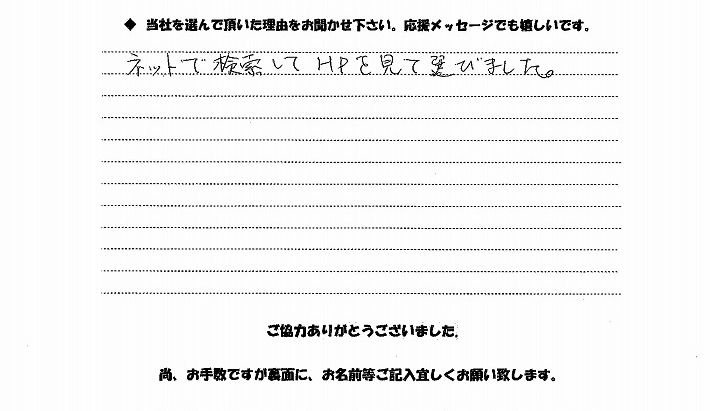 ◆ 当社を選んで頂いた理由をお聞かせ下さい。応援メッセージでも嬉しいです。
ネットで検索して HPを見て選びました。
ご協力ありがとうございました。
尚、お手数ですが裏面に、お名前等ご記入宜しくお願い致します。